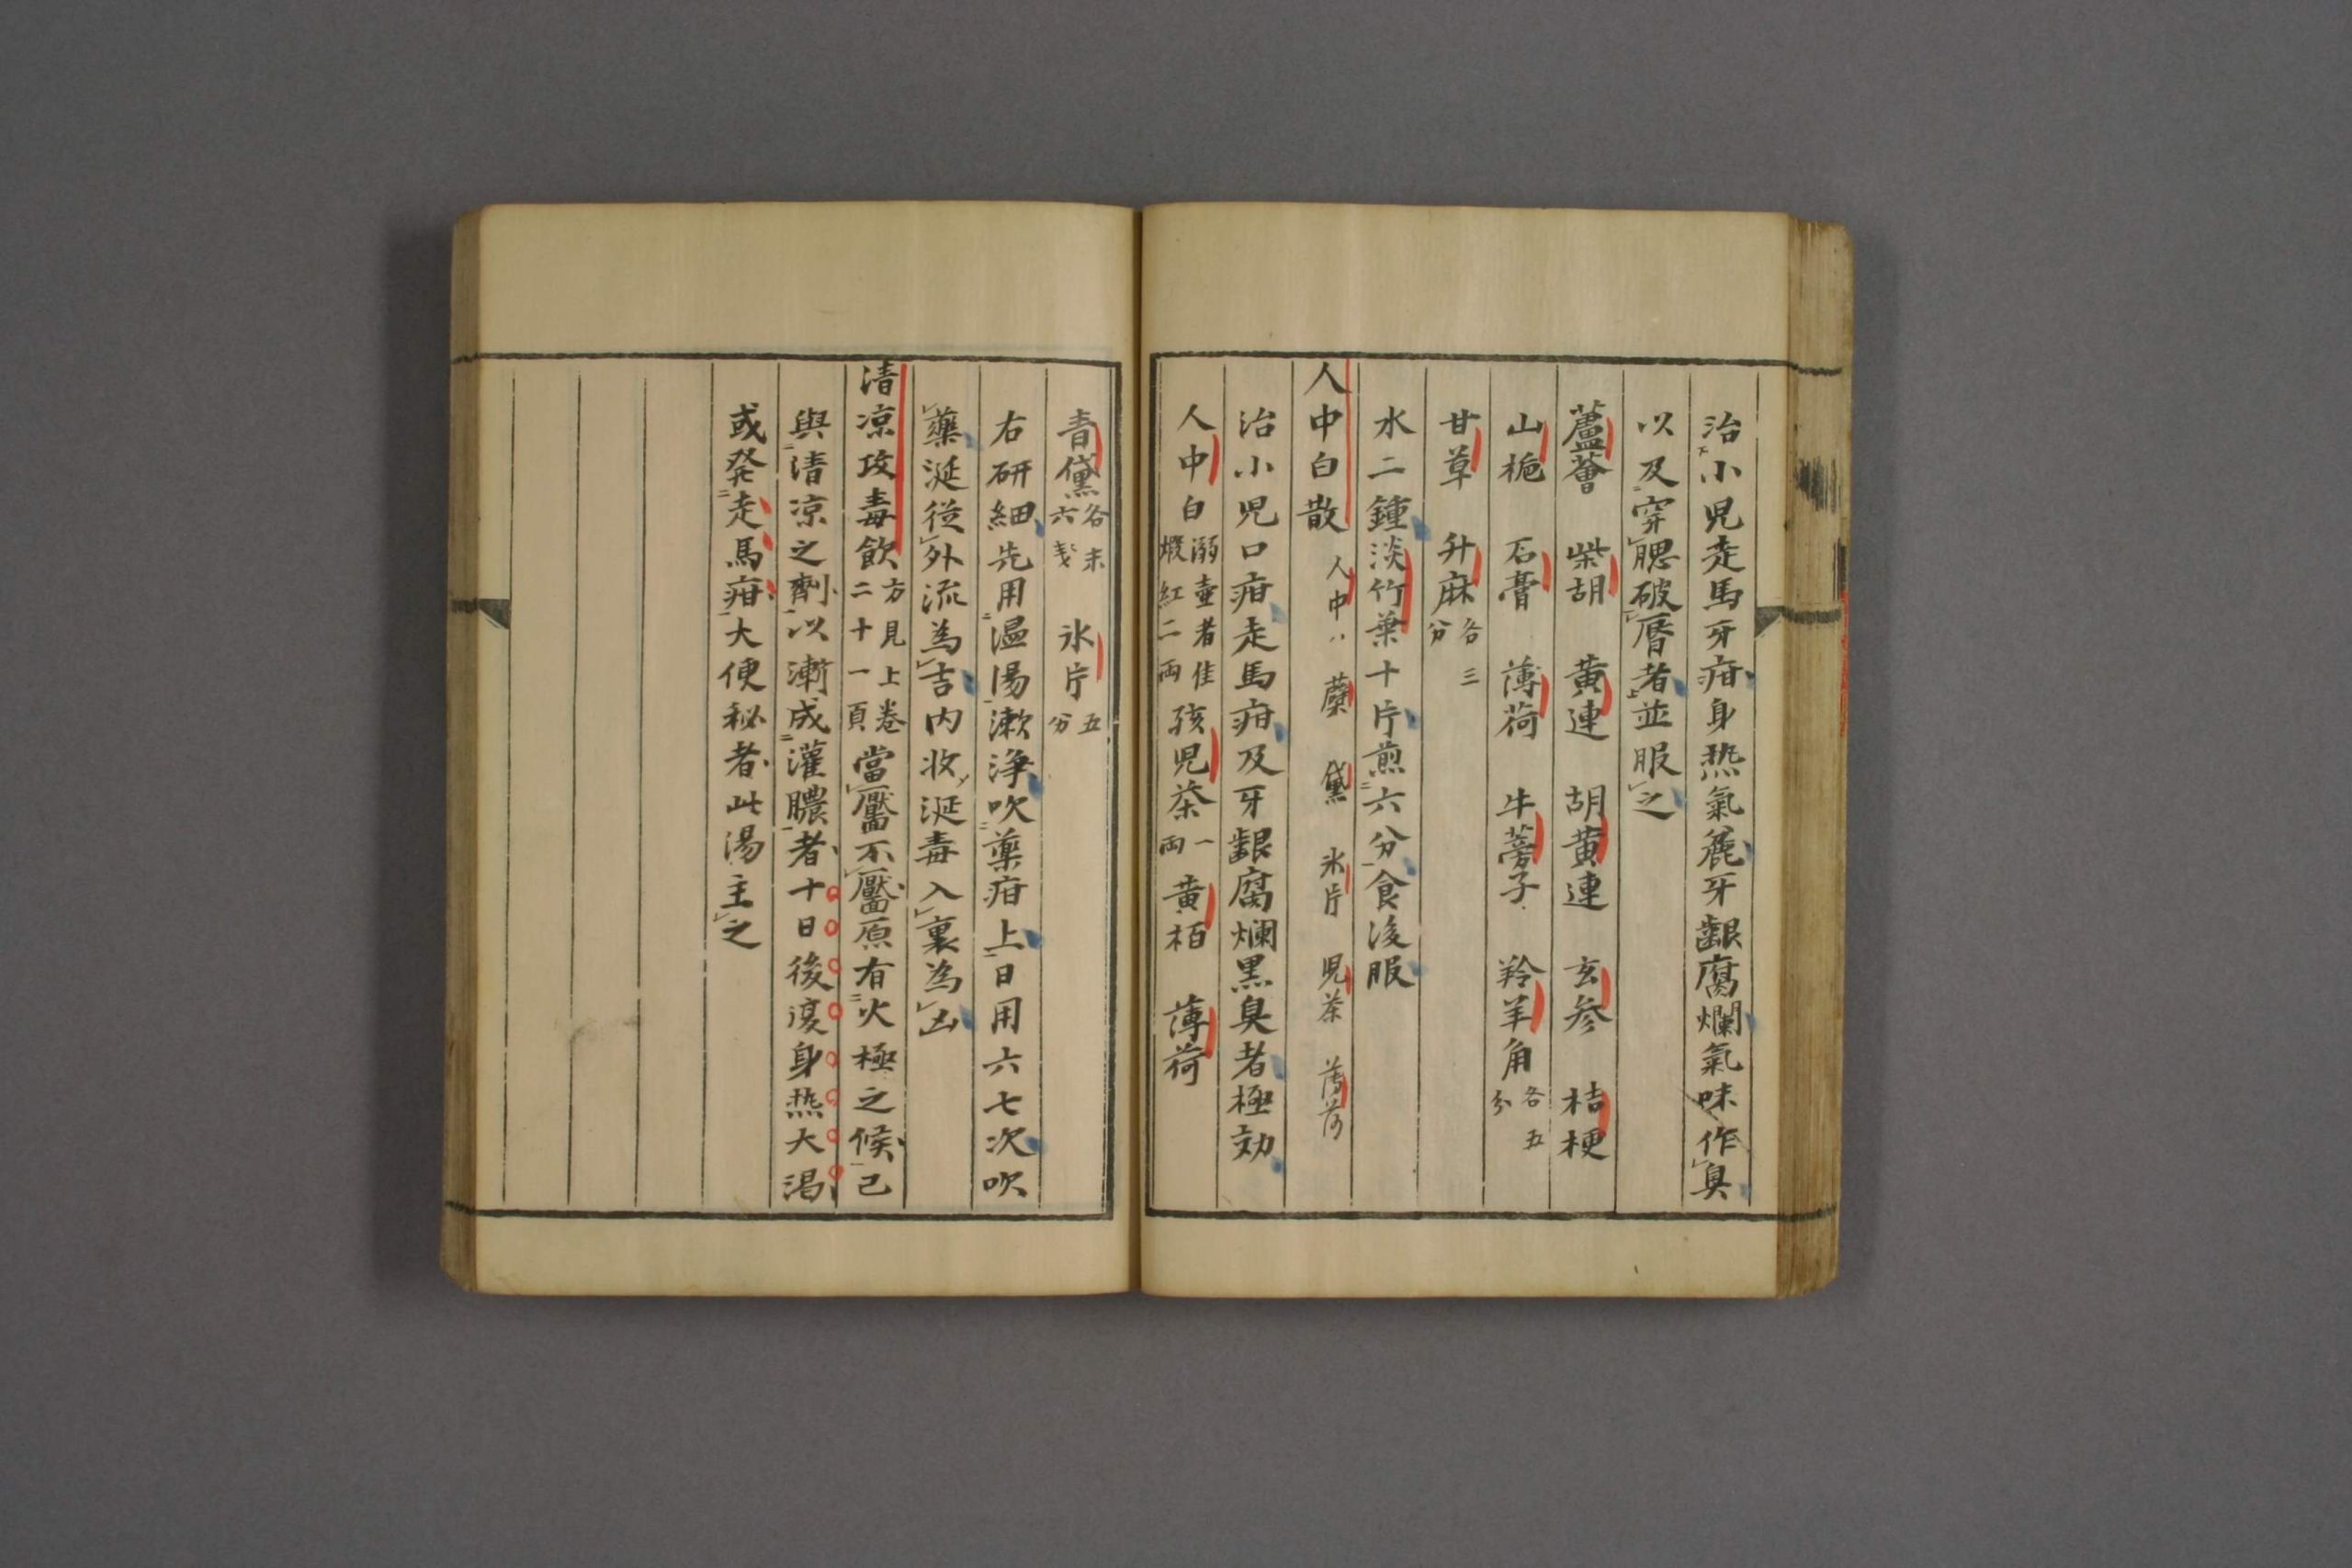 治小児走馬牙疳身热氣麁牙齦腐爛氣味作臭
以及穿腮破唇者並服之
蘆薈 柴胡 黄連 胡黄連 玄参 桔梗
山梔 石膏 薄荷 牛蒡子 羚羊角各五分
甘草 升麻各三分
水二鍾淡竹葉十片煎六分食後服
人中白散 人中 蘗 黛 氷片 児茶 薄荷
治小児口疳走馬疳及牙齦腐爛黒臭者極効
人中白溺壷者佳煅紅二両 孩児茶一両 黄栢 薄荷
青黛各末六戔 氷片五分
右研細先用温湯漱浄吹薬疳上日用六七次吹
藥涎從外流為吉内收涎毒入裏為凶
清凉攻毒飲方見上巻二十一頁 當靨不靨原有火極之候已
與清凉之劑以漸成灌膿者十日後復身热大渇
或発走馬疳大便秘者此湯主之